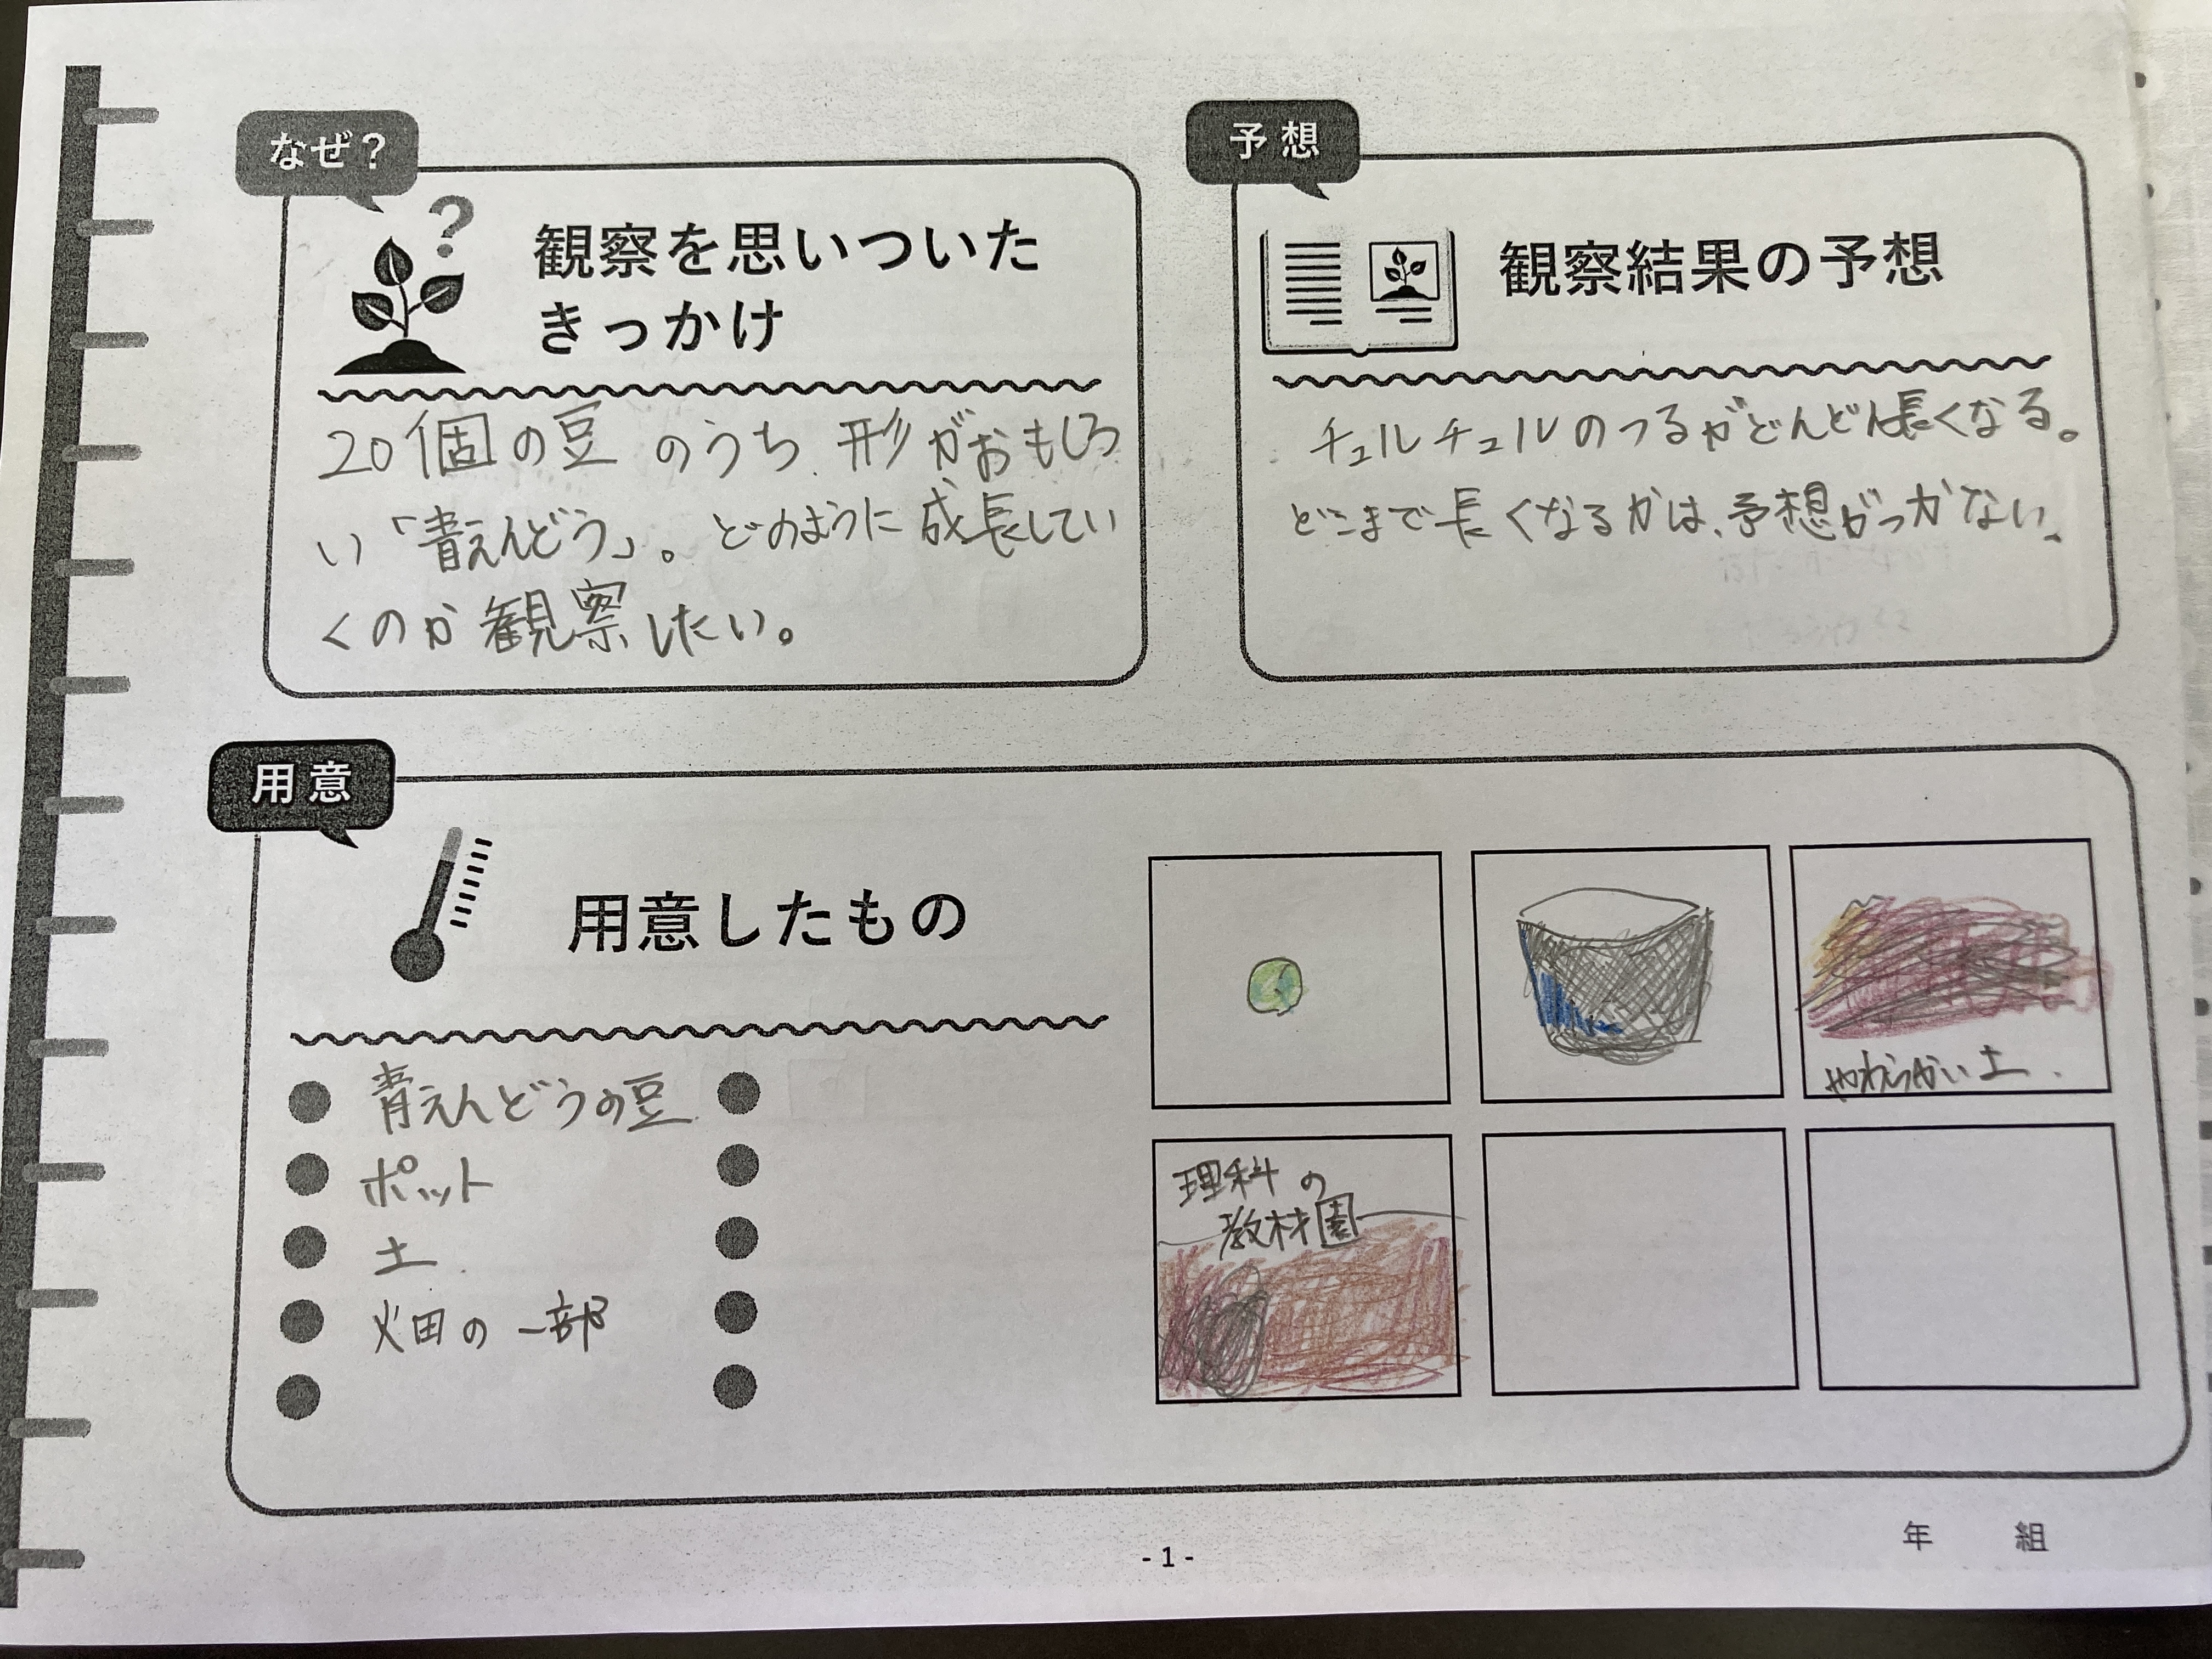 なぜ?
観察を思いついた
きっかけ
20個の豆のうち、形がおもしろ
い「青えんどう」。どのように成長してい
くのか観察したい。
予想
観察結果の予想
チュルチュルのつるがどんどん長くなる。
どこまで長くなるかは、予想がつかない。
用意
用意したもの
青えんどうの豆
ポット
土
畑の一部
やわらかい土
理科の
教材園
年 組
- 1 -